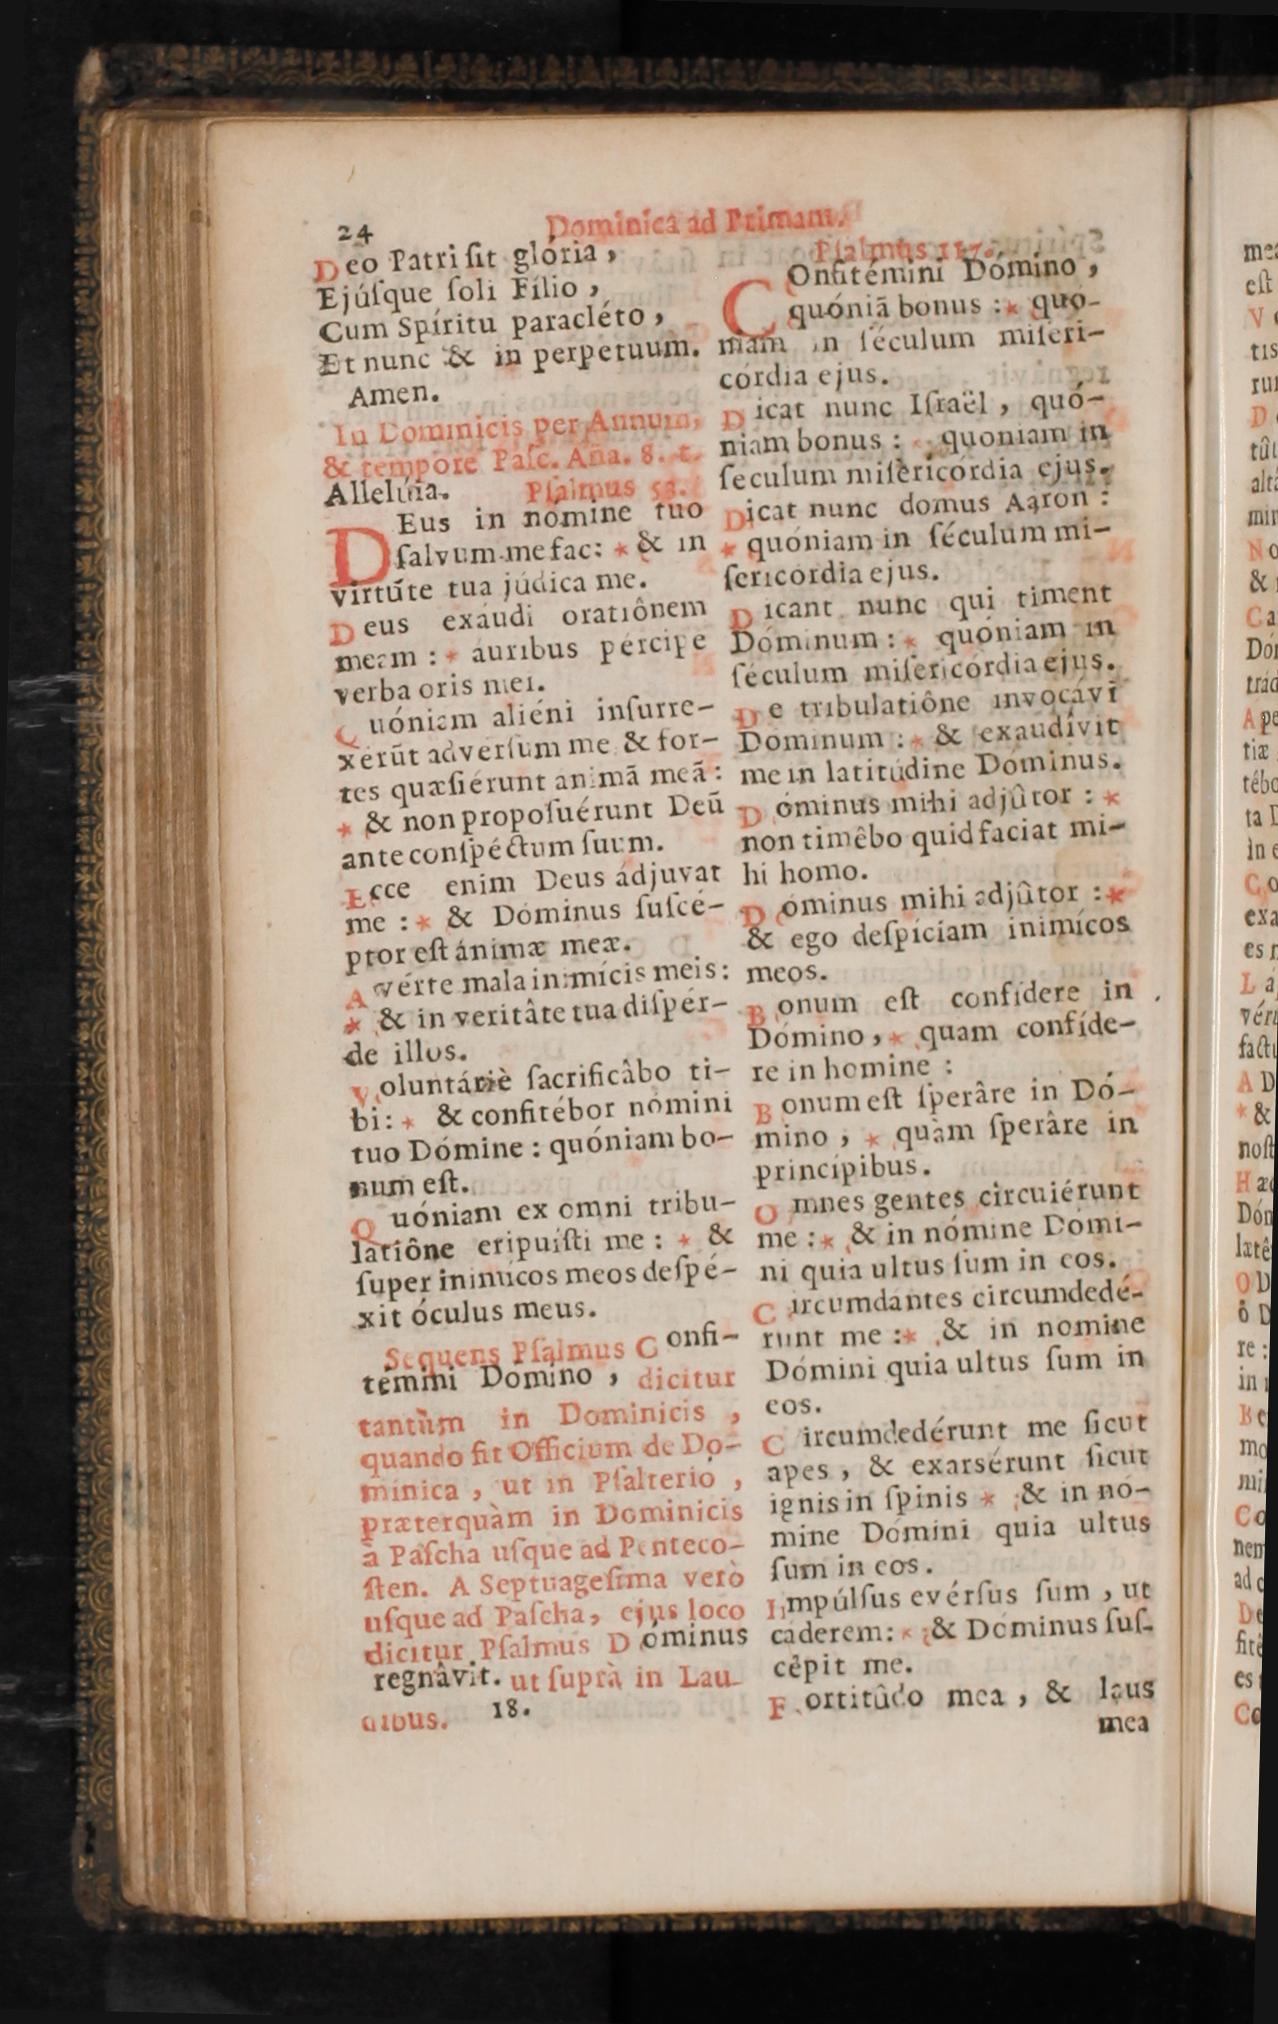 24
Dominica ad Primam.
Deo Patri ſit glória,
Ejúſque ſoli Fílio,
Cum Spíritu paracléto,
Et nunc & in perpetuum.
Amen.
In Dominicis per Annum,
& tempore Paſc. Aña. 8. t.
Allelúia. Pſalmus 53.
DEus in nómine tuo
ſalvum me fac: * & in
virtûte tua júdica me.
Deus exáudi oratiônem
meam : * áuribus pércipe
verba oris mei.
Quóniam aliéni inſurre-
xerūt adverſum me & for-
tes quæſiérunt animã meã :
* & non propoſuérunt Deū
ante conſpéctum ſuum.
Ecce enim Deus ádjuvat
me : * & Dóminus ſuſcé-
ptor eſt ánimæ meæ.
Avérte mala inimícis meis :
* & in veritâte tua diſpér-
de illos.
Voluntáriè ſacrificâbo ti-
bi : * & confitébor nómini
tuo Dómine : quóniam bo-
num eſt.
Quóniam ex omni tribu-
latiône eripuiſti me : * &
ſuper inimícos meos deſpé-
xit óculus meus.
Sequens Pſalmus Confi-
témini Dómino, dicitur
tantùm in Dominicis,
quando fit Officium de Do-
minica, ut in Pſalterio,
præterquàm in Dominicis
à Paſcha uſque ad Penteco-
ſten. A Septuageſima verò
uſque ad Paſcha, ejus loco
dicitur Pſalmus Dóminus
regnâvit. ut ſuprà in Lau-
dibus. 18.
Pſalmus 117.
COnfitémini Dómino,
quóniã bonus : * quó-
niam in ſéculum miſeri-
córdia ejus.
Dicat nunc Iſraël, quó-
niam bonus : * quoniam in
ſeculum miſericórdia ejus.
Dicat nunc domus Aaron :
* quóniam in ſéculum mi-
ſericórdia ejus.
Dicant nunc qui timent
Dóminum : * quóniam in
ſéculum miſericórdia ejus.
De tribulatiône invocávi
Dominum : * & exaudívit
me in latitúdine Dóminus.
Dóminus mihi adjûtor : *
non timêbo quid faciat mi-
hi homo.
Dóminus mihi adjûtor : *
& ego deſpíciam inimícos
meos.
Bonum eſt confídere in
Dómino, * quam confíde-
re in homine :
Bonum eſt ſperâre in Dó-
mino, * quàm ſperâre in
princípibus.
Omnes gentes circuiérunt
me : * & in nómine Dómi-
ni quia ultus ſum in eos.
Circumdántes circumdedé-
runt me : * & in nomine
Dómini quia ultus ſum in
eos.
Circumdedérunt me ſicut
apes, & exarsérunt ſicut
ignis in ſpinis * & in nó-
mine Dómini quia ultus
ſum in eos.
Impúlſus evérſus ſum, ut
caderem : * & Dóminus ſuſ-
cêpit me.
Fortitûdo mea, & laus
mea